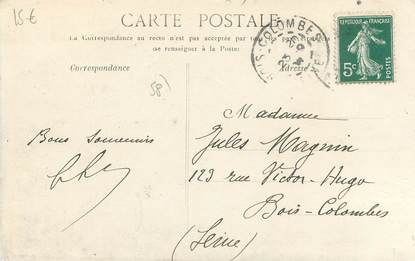 15€
CARTE POSTALE
La Correspondance au recto n'est pas acceptée par tous
(se renseigner à la Poste)
Correspondance
Adresse
BOIS-COLOMBES
REPUBLIQUE FRANÇAISE
5c
POSTES
58)
Bons Souvenirs
Madame
Jules Magnin
123 rue Victor-Hugo
Bois-Colombes
(Seine)